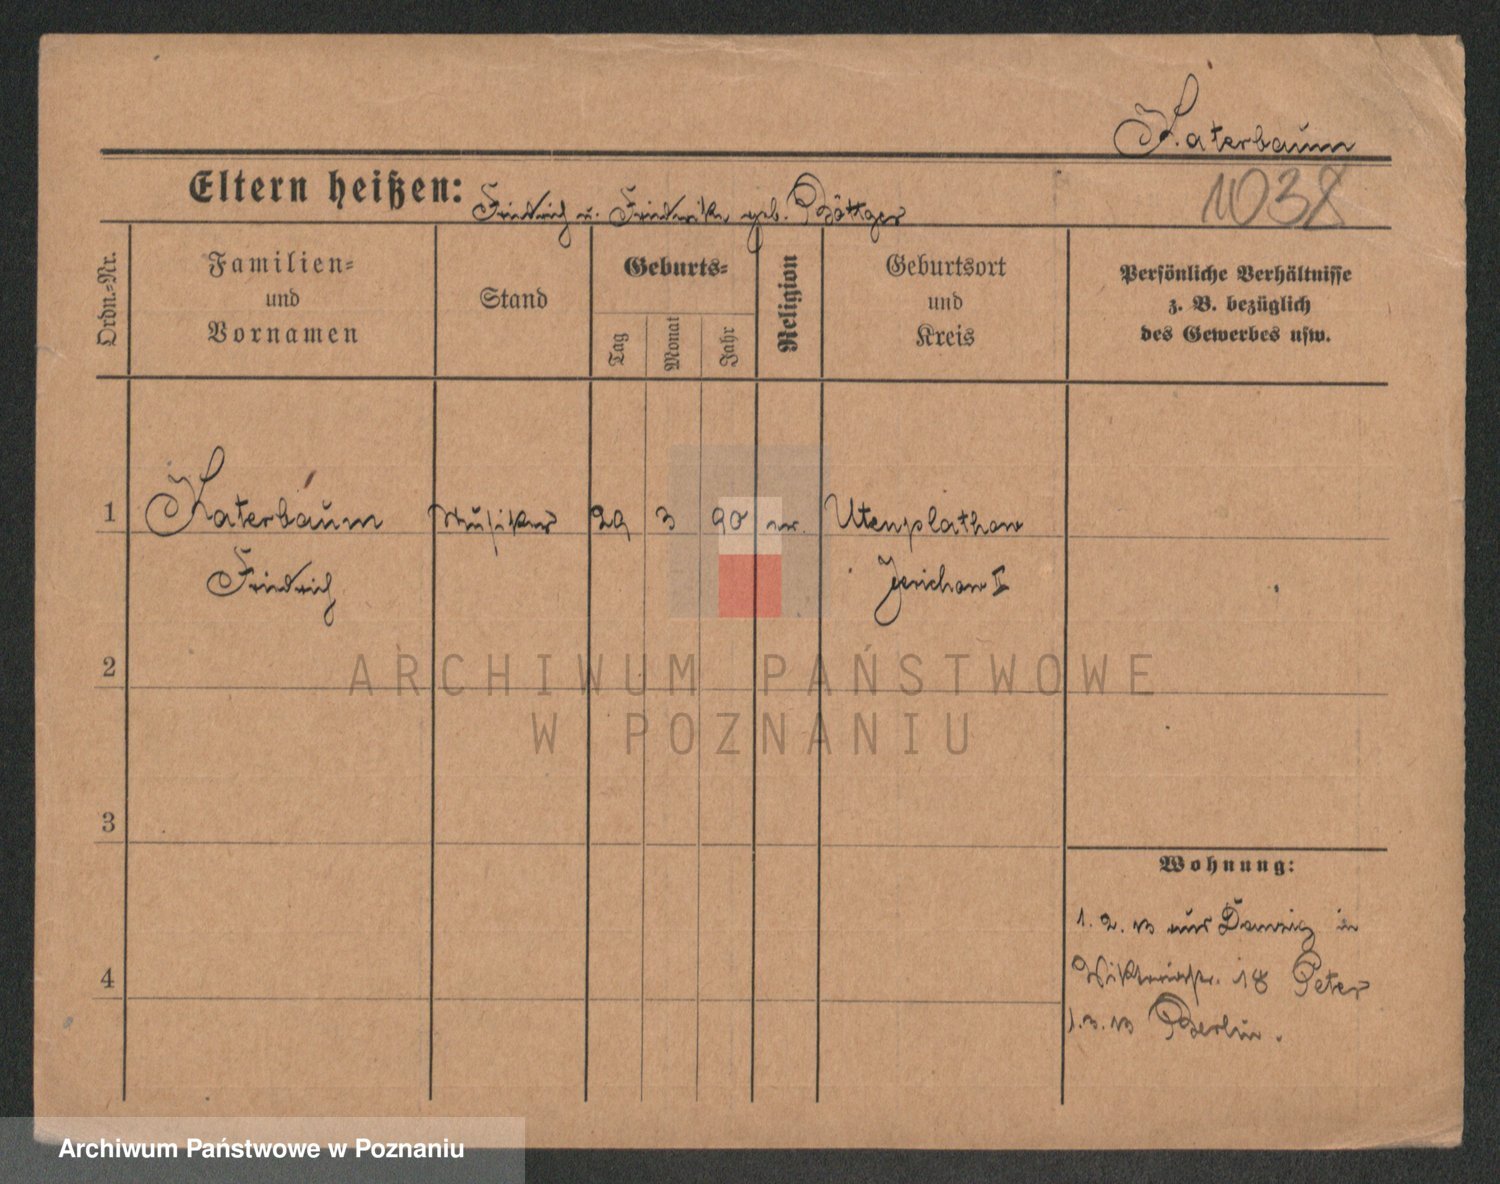 Katerbaum
Eltern heißen: Friedrich u. Friederike geb. Böttger
1038
Ordn.-Nr.
Familien-
und
Vornamen
Stand
Geburts-
Tag
Monat
Jahr
Religion
Geburtsort
und
Kreis
Persönliche Verhältnisse
z. B. bezüglich
des Gewerbes usw.
1 Katerbaum Musiker 29 3 90 ev. Altenplathow
Friedrich Jerichow II
2
3
4
Wohnung:
1. 2. 13 aus Danzig in
Viktoriastr. 18 Peter
1. 3. 13 Berlin.
ARCHIWUM PAŃSTWOWE
W POZNANIU
Archiwum Państwowe w Poznaniu